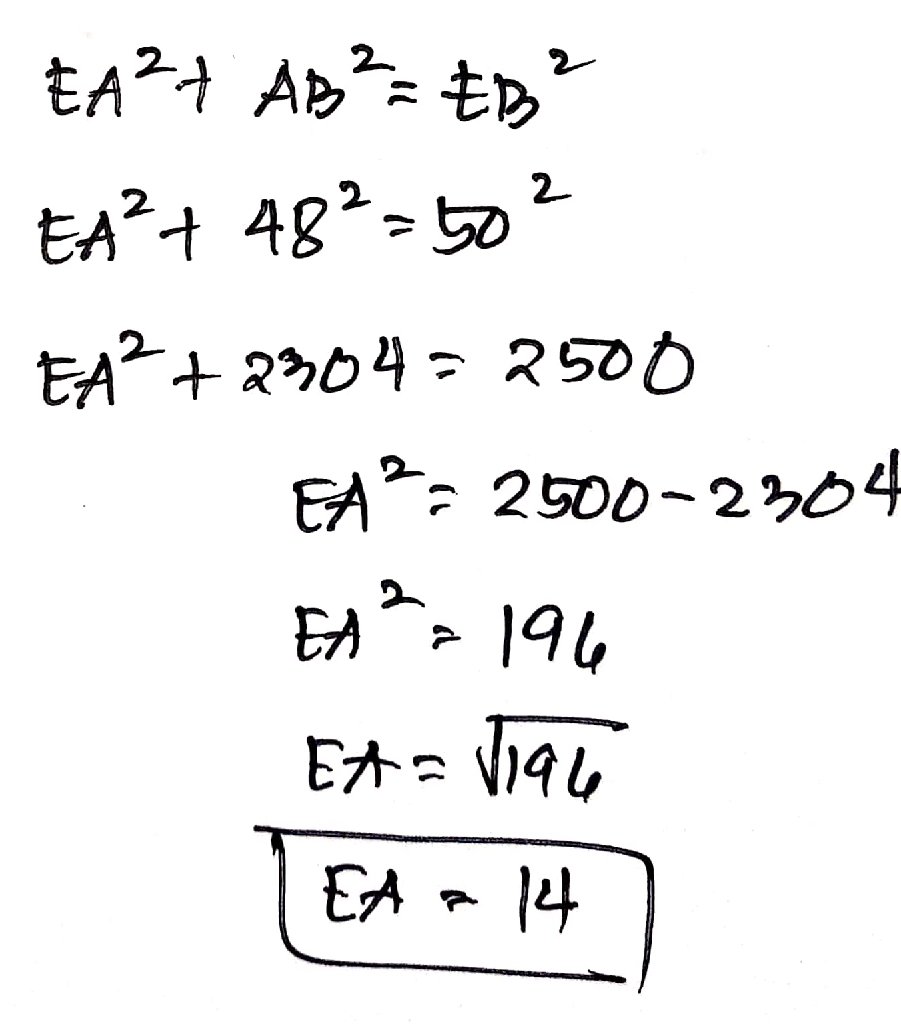 EA² + AB² = EB²
EA² + 48² = 50²
EA² + 2304 = 2500
EA² = 2500 - 2304
EA² = 196
EA = √196
EA = 14